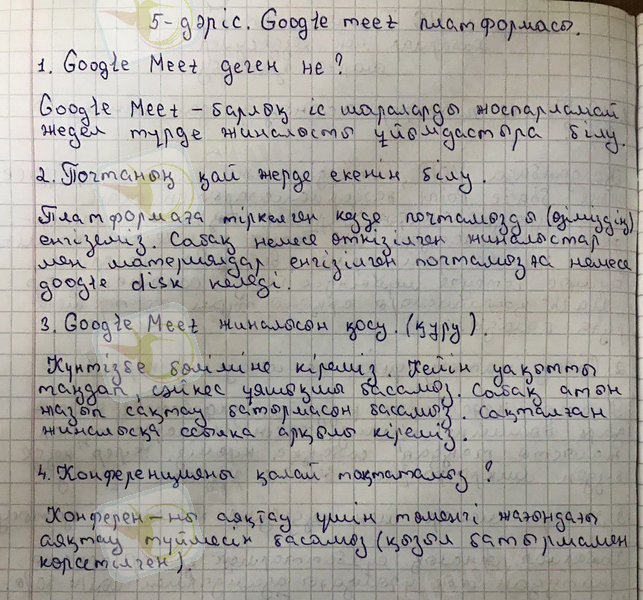 5-дәріс. Google meet платформасы.
1. Google Meet деген не?
Google Meet – барлық іс шараларды жоспарламай
жедел түрде жиналысты ұйымдастыра білу.
2. Почтаның қай жерде екенін білу.
Платформаға тіркелген кезде почтамызды (өзіміздің)
енгіземіз. Сабақ немесе өткізілген жиналыстар
мен материалдар енгізілген почтамызға немесе
google disk келеді.
3. Google Meet жиналысын қосу. (құру).
Күнтізбе бөліміне кіреміз. Кейін уақытты
таңдап, сәйкес ұяшықты басамыз. Сабақ атын
жазып сақтау батырмасон басамыз. Сақталған
жиналысқа ссылка арқылы кіреміз.
4. Конференцияны қалай тоқтатамыз?
Конферен-ны аяқтау үшін төменгі жағындағы
аяқтау түймесін басамоз (қызыл батырмамен
көрсетілген).